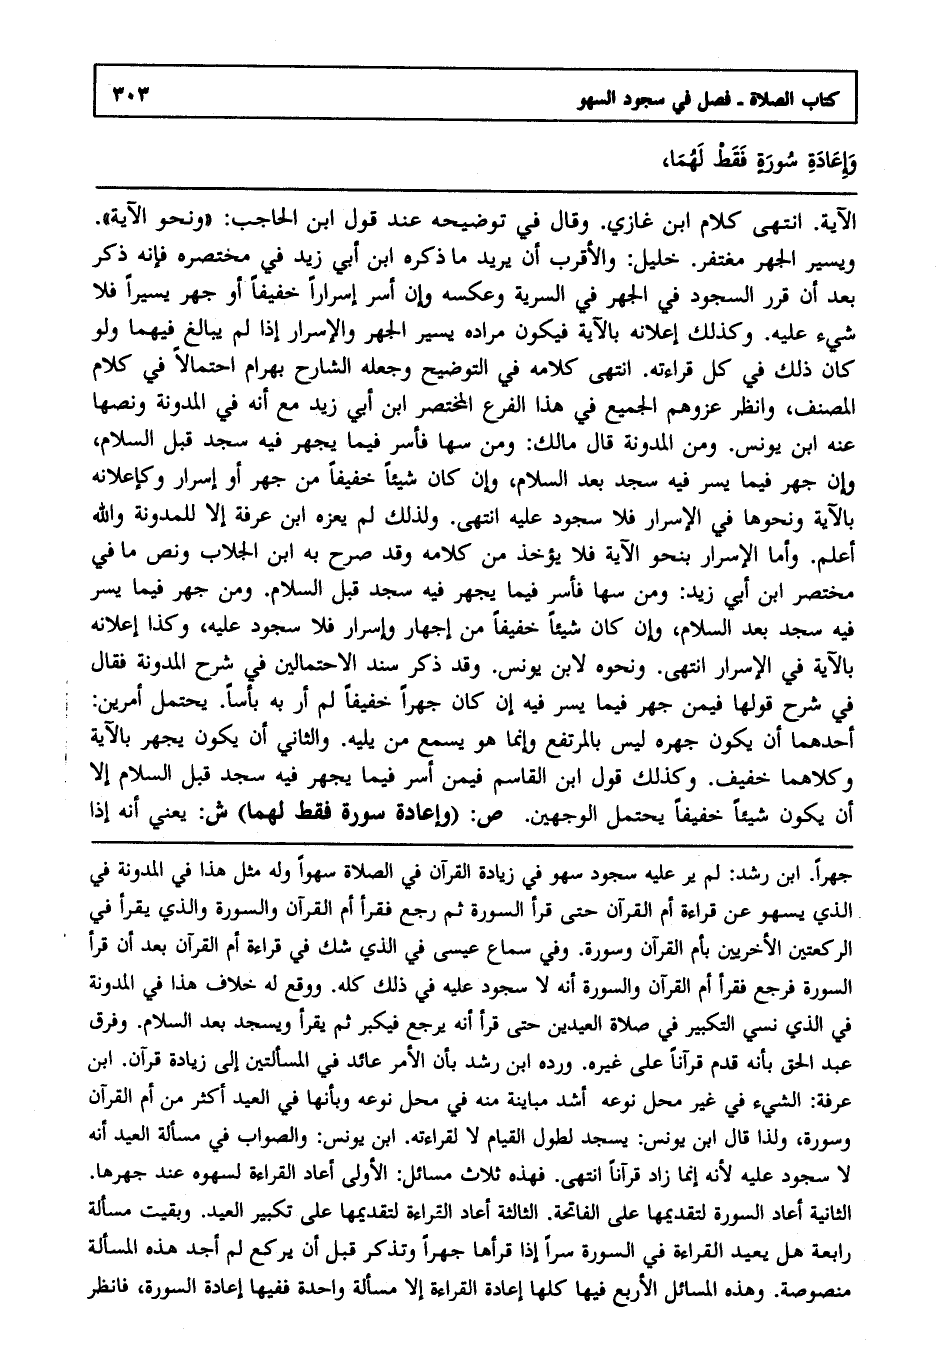 كتاب الصلاة ـ فصل في سجود السهو
٣٠٣
وَإِعَادَةِ سُورَةٍ فَقَطْ لَهُمَا،
الآية. انتهى كلام ابن غازي. وقال في توضيحه عند قول ابن الحاجب: «ونحو الآية».
ويسير الجهر مغتفر. خليل: والأقرب أن يريد ما ذكره ابن أبي زيد في مختصره فإنه ذكر
بعد أن قرر السجود في الجهر في السرية وعكسه وإن أسر إسراراً خفيفاً أو جهر يسيراً فلا
شيء عليه. وكذلك إعلانه بالآية فيكون مراده يسير الجهر والإسرار إذا لم يبالغ فيهما ولو
كان ذلك في كل قراءته. انتهى كلامه في التوضيح وجعله الشارح بهرام احتمالاً في كلام
المصنف، وانظر عزوهم الجميع في هذا الفرع المختصر ابن أبي زيد مع أنه في المدونة ونصها
عنه ابن يونس. ومن المدونة قال مالك: ومن سها فأسر فيما يجهر فيه سجد قبل السلام،
وإن جهر فيما يسر فيه سجد بعد السلام، وإن كان شيئاً خفيفاً من جهر أو إسرار وكإعلانه
بالآية ونحوها في الإسرار فلا سجود عليه انتهى. ولذلك لم يعزه ابن عرفة إلا للمدونة والله
أعلم. وأما الإسرار بنحو الآية فلا يؤخذ من كلامه وقد صرح به ابن الجلاب ونص ما في
مختصر ابن أبي زيد: ومن سها فأسر فيما يجهر فيه سجد قبل السلام. ومن جهر فيما يسر
فيه سجد بعد السلام، وإن كان شيئاً خفيفاً من إجهار وإسرار فلا سجود عليه، وكذا إعلانه
بالآية في الإسرار انتهى. ونحوه لابن يونس. وقد ذكر سند الاحتمالين في شرح المدونة فقال
في شرح قولها فيمن جهر فيما يسر فيه إن كان جهراً خفيفاً لم أر به بأساً. يحتمل أمرين:
أحدهما أن يكون جهره ليس بالمرتفع وإنما هو يسمع من يليه. والثاني أن يكون يجهر بالآية
وكلاهما خفيف. وكذلك قول ابن القاسم فيمن أسر فيما يجهر فيه سجد قبل السلام إلا
أن يكون شيئاً خفيفاً يحتمل الوجهين. ص: (وإعادة سورة فقط لهما) ش: يعني أنه إذا
جهراً. ابن رشد: لم ير عليه سجود سهو في زيادة القرآن في الصلاة سهواً وله مثل هذا في المدونة في
الذي يسهو عن قراءة أم القرآن حتى قرأ السورة ثم رجع فقرأ أم القرآن والسورة والذي يقرأ في
الركعتين الأخريين بأم القرآن وسورة. وفي سماع عيسى في الذي شك في قراءة أم القرآن بعد أن قرأ
السورة فرجع فقرأ أم القرآن والسورة أنه لا سجود عليه في ذلك كله. ووقع له خلاف هذا في المدونة
في الذي نسي التكبير في صلاة العيدين حتى قرأ أنه يرجع فيكبر ثم يقرأ ويسجد بعد السلام. وفرق
عبد الحق بأنه قدم قرآناً على غيره. ورده ابن رشد بأن الأمر عائد في المسألتين إلى زيادة قرآن. ابن
عرفة: الشيء في غير محل نوعه أشد مباينة منه في محل نوعه وبأنها في العيد أكثر من أم القرآن
وسورة، ولذا قال ابن يونس: يسجد لطول القيام لا لقراءته. ابن يونس: والصواب في مسألة العيد أنه
لا سجود عليه لأنه إنما زاد قرآناً انتهى. فهذه ثلاث مسائل: الأولى أعاد القراءة لسهوه عند جهرها.
الثانية أعاد السورة لتقديمها على الفاتحة. الثالثة أعاد القراءة لتقديمها على تكبير العيد. وبقيت مسألة
رابعة هل يعيد القراءة في السورة سراً إذا قرأها جهراً وتذكر قبل أن يركع لم أجد هذه المسألة
منصوصة. وهذه المسائل الأربع فيها كلها إعادة القراءة إلا مسألة واحدة ففيها إعادة السورة، فانظر